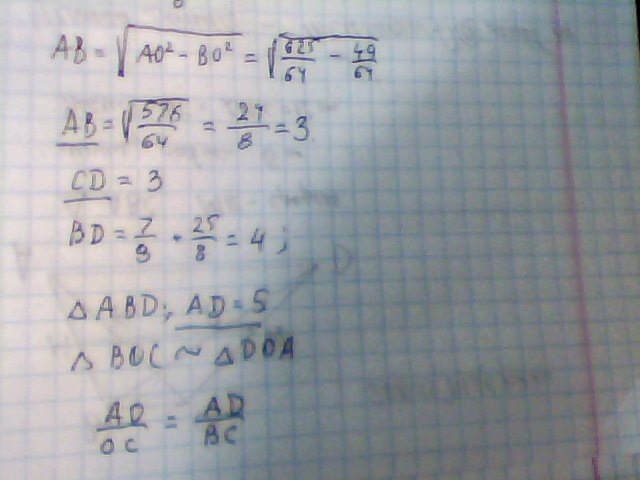 AB = √(AO² - BO²) = √(625/64 - 49/64)
AB = √(576/64) = 24/8 = 3
CD = 3
BD = 7/9 · 25/8 = 4;
△ABD; AD = 5
△BOC ~ △DOA
AO/OC = AD/BC